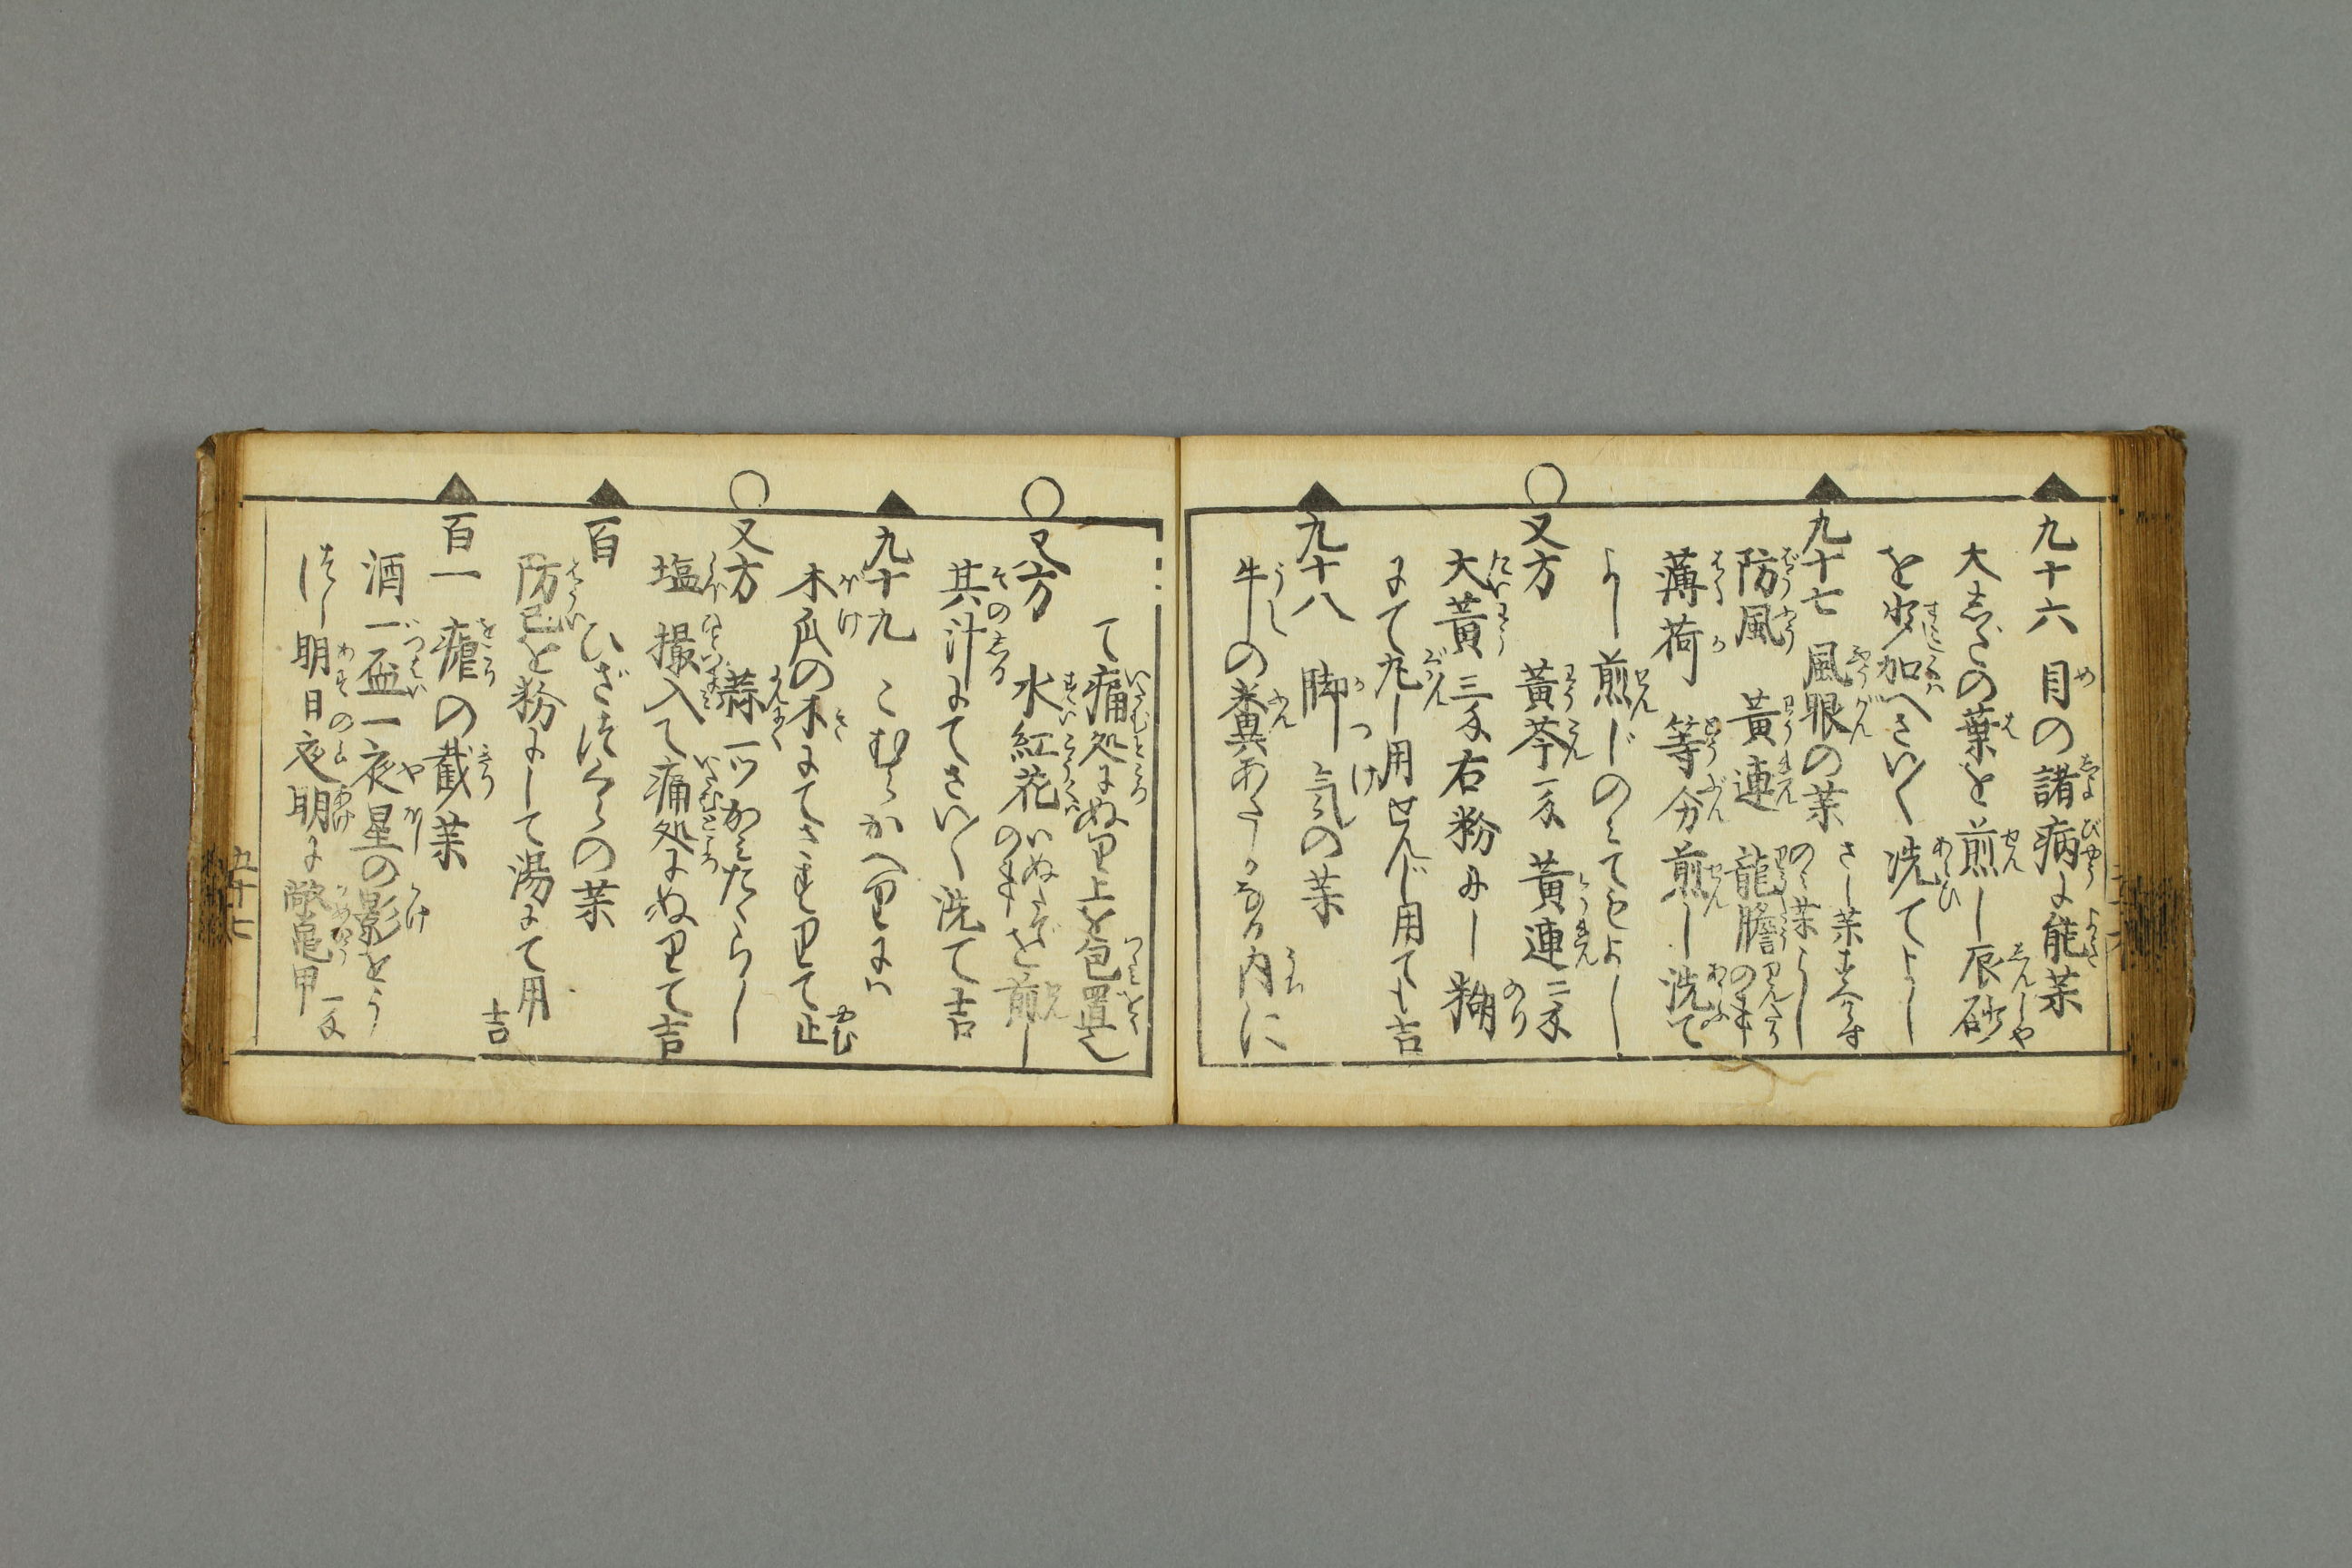 九十六 目の諸病に能薬
大志たの葉を煎し辰砂
を少加へさい〳〵洗てよし
九十七 風眼の薬 さし薬
のみ薬よし
防風 黄連 龍膽
薄荷 等分煎し洗て
よし煎じのみてもよし
又方 黄芩一匁 黄連二匁
大黄三匁右粉にし糊
にて丸し用せんじ用てし吉
九十八 脚気の薬
牛の糞あたゝかなる内に
て痛処にぬり上を包置べし
又方 水紅花 いぬたで の事を煎し
其汁にてさい〳〵洗て吉
九十九 こむらかへりには
木瓜の木にてさすりて止
又方 蒜一ツかみたゝらし
塩撮入て痛処にぬりて吉
百 ひざほねの薬
防已を粉にして湯にて用吉
百一 瘧の截薬
酒一盃一夜星の影をう
つし明日夜明に敝亀甲一匁
五十七